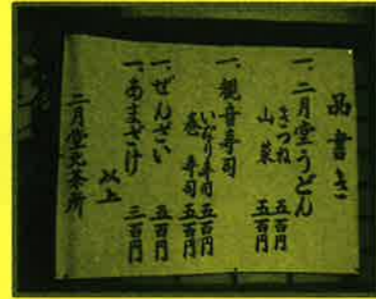 品書き
一、二月堂うどん
きつね 五百円
山菜 五百円
一、観音寿司
いなり寿司 五百円
巻寿司 五百円
一、ぜんざい 五百円
一、あまざけ 三百円
以上
二月堂北茶所